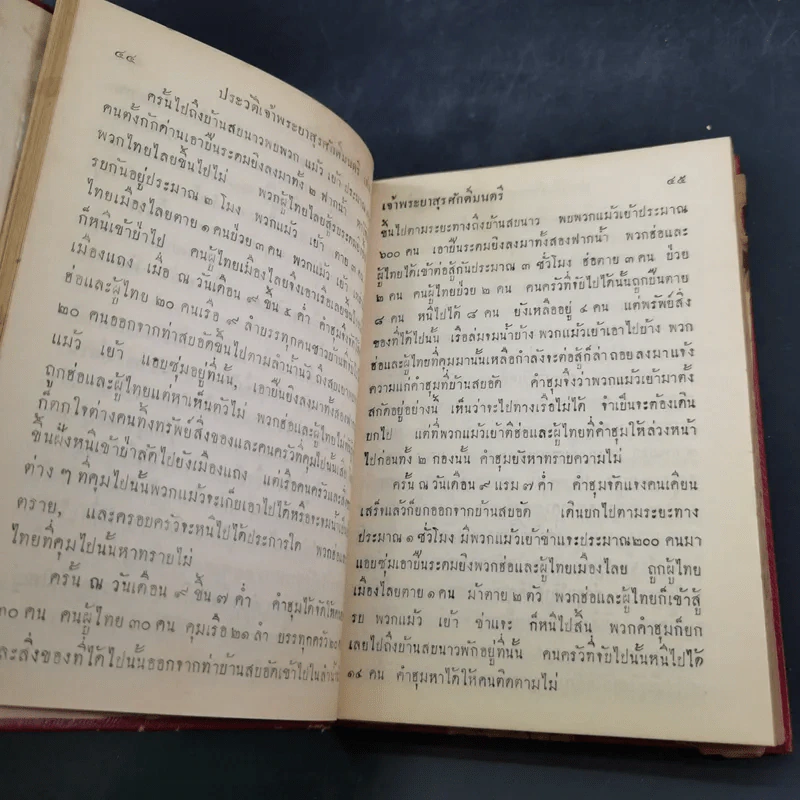 ๔๔
ประวัติเจ้าพระยาสุรศักดิ์มนตรี
ครั้นไปถึงบ้านสบนาวพบพวก แม้ว เย้า ประมาณ
คนตั้งกักด่านเอาปืนระดมยิงลงมาทั้ง ๒ ฟากน้ำ
พวกไทยไลยขึ้นไปไม่ พวกผู้ไทยไลยสู้รบ
รบกันอยู่ประมาณ ๖ โมง พวกแม้ว เย้า ตาย ๓
ไทยเมืองไลยตาย ๑ คนป่วย ๓ คน พวกแม้ว เย้า
ก็หนีเข้าป่าไป คนผู้ไทยเมืองไลยจึงเอาเรือขึ้น
เมืองแถง เมื่อ ณ วันเดือน ๙ ขึ้น ๕ ค่ำ คำฮุม
ฮ่อและผู้ไทย ๒๐ คนเรือ ๙ ลำบรรทุกคนชาวบ้าน
๒๐ คนออกจากท่าสบอัดขึ้นไปตามลำน้ำนัว ถึงสบ
แม้ว เย้า แอบซุ่มอยู่ที่นั้น, เอาปืนยิงลงมาทั้งสอง
ถูกฮ่อและผู้ไทยแต่หาเห็นตัวไม่ พวกฮ่อและผู้ไทย
ก็ตกใจต่างคนทิ้งทรัพย์สิ่งของและคนครัวที่คุมไปนั้น
ขึ้นฝั่งหนีเข้าป่าลัดไปยังเมืองแถง แต่เรือคนครัวและสิ่ง
ต่าง ๆ ที่คุมไปนั้นพวกแม้วจะเก็บเอาไปได้หรือจะจมน้ำ
ตราย, และครอบครัวจะหนีไปได้ประการใด พวกฮ่อ
ไทยที่คุมไปนั้นหาทราบไม่
ครั้น ณ วันเดือน ๙ ขึ้น ๗ ค่ำ คำฮุมได้จัดให้
๓๐ คน คนผู้ไทย ๓๐ คน คุมเรือ ๒๑ ลำ บรรทุกครัว
และสิ่งของที่ได้ไปนั้นออกจากท่าบ้านสบอัดเข้าไปในลำน้ำ
๔๕
เจ้าพระยาสุรศักดิ์มนตรี
ขึ้นไปตามระยะทางถึงบ้านสบนาว พบพวกแม้วเย้าประมาณ
๒๐๐ คน เอาปืนระดมยิงลงมาทั้งสองฟากน้ำ พวกฮ่อและ
ผู้ไทยได้เข้าต่อสู้กันประมาณ ๓ ชั่วโมง ฮ่อตาย ๓ คน ป่วย
๒ คน คนผู้ไทยป่วย ๒ คน คนครัวที่จับไปได้นั้นถูกปืนตาย
๘ คน หนีไปได้ ๘ คน ยังเหลืออยู่ ๔ คน แต่ทรัพย์สิ่ง
ของที่ได้ไปนั้น เรือล่มจมน้ำบ้าง พวกแม้วเย้าเอาไปบ้าง พวก
ฮ่อและผู้ไทยที่คุมมานั้นเหลือกำลังจะต่อสู้ก็ล่าถอยลงมาแจ้ง
ความแก่คำฮุมที่บ้านสบอัด คำฮุมจึงว่าพวกแม้วเย้ามาตั้ง
สกัดอยู่อย่างนี้ เห็นว่าจะไปทางเรือไม่ได้ จำเป็นจะต้องเดิน
ยกไป แต่ที่พวกแม้วเย้าตีฮ่อและผู้ไทยที่คำฮุมให้ล่วงหน้า
ไปก่อนทั้ง ๒ กองนั้น คำฮุมยังหาทราบความไม่
ครั้น ณ วันเดือน ๙ แรม ๗ ค่ำ คำฮุมจัดแจงคนเดียน
เสร็จแล้วก็ยกออกจากบ้านสบอัด เดินยกไปตามระยะทาง
ประมาณ ๑ ชั่วโมง มีพวกแม้วเย้าข่าแจะประมาณ๒๐๐ คนมา
แอบซุ่มเอาปืนระดมยิงพวกฮ่อและผู้ไทยเมืองไลย ถูกผู้ไทย
เมืองไลยตาย ๑ คน ม้าตาย ๒ ตัว พวกฮ่อและผู้ไทยก็เข้าสู้
รบ พวกแม้ว เย้า ข่าแจะ ก็หนีไปสิ้น พวกคำฮุมก็ยก
เลยไปถึงบ้านสบนาวพักอยู่ที่นั้น คนครัวที่จับไปนั้นหนีไปได้
๑๔ คน คำฮุมหาได้ให้คนติดตามไม่